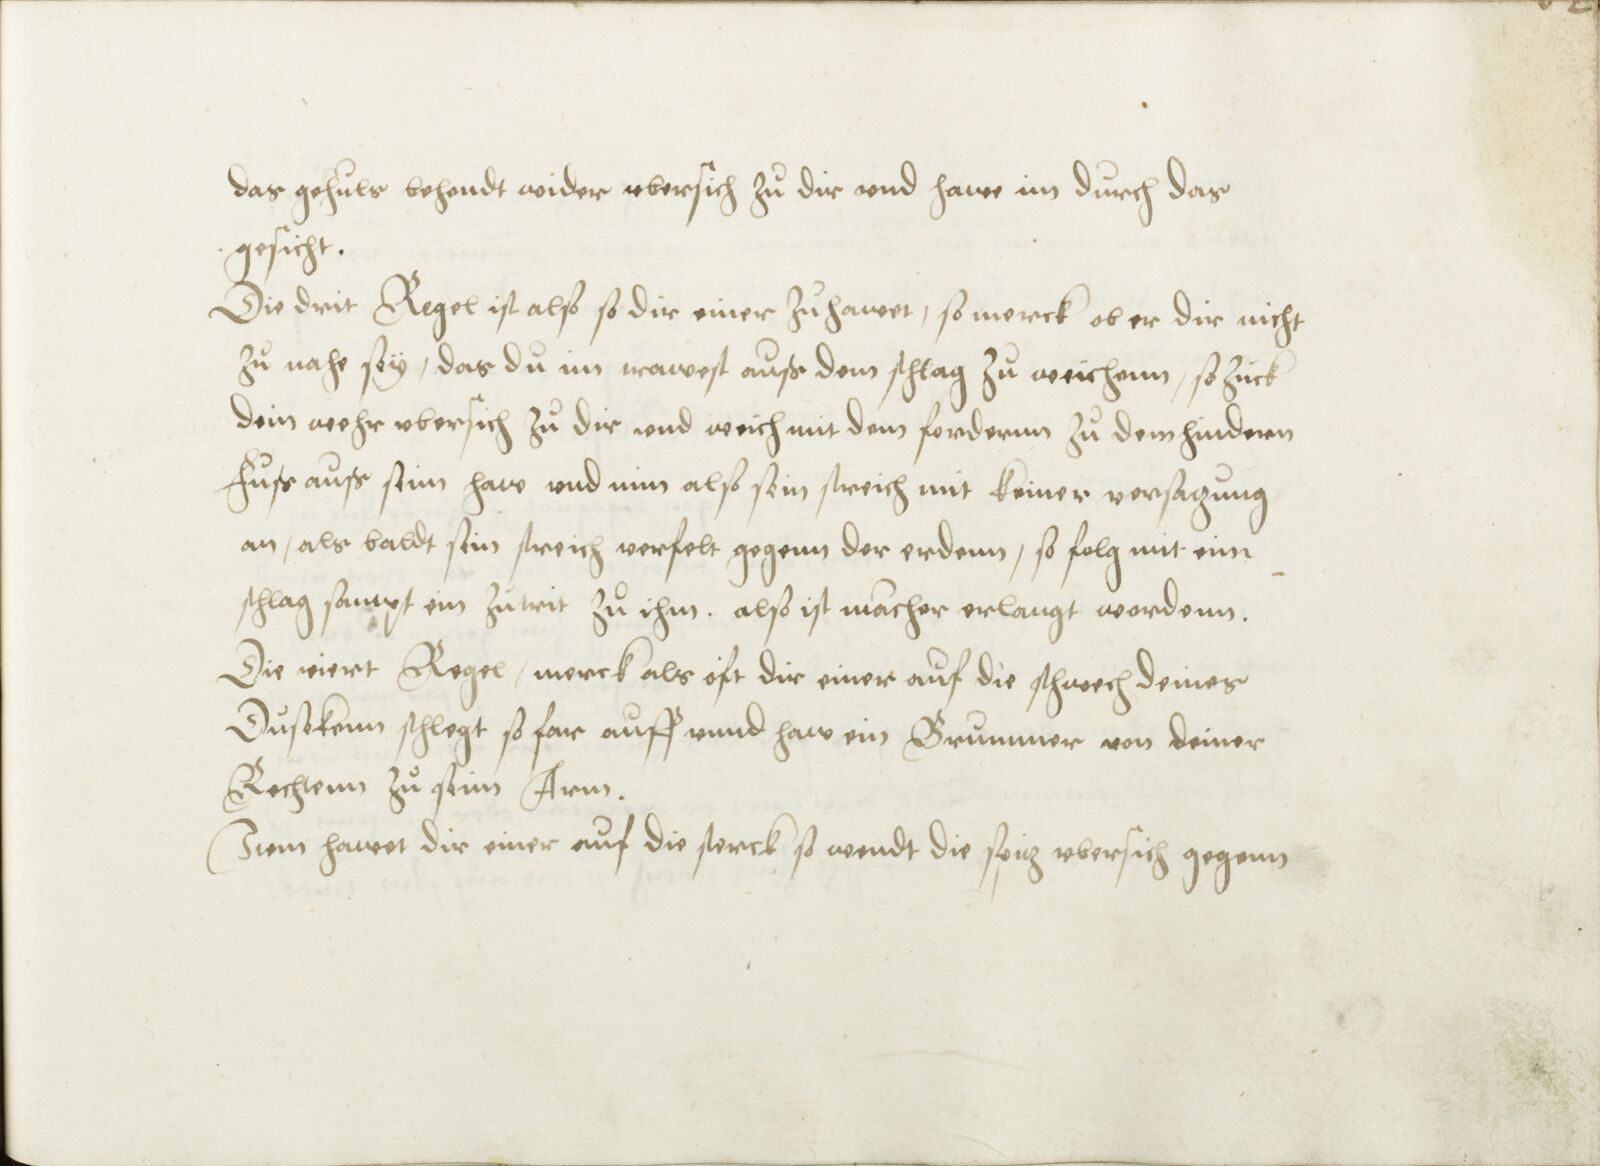 das gehültz behendt wider vbersich zů dir vnd hawe im durch das
gesicht.
Die drit Regel ist also so dir einer zuhawet, so merck ob er dir nicht
zů nahe seÿ, das du im trawest auß dem schlag zů weichenn, so zuck
dein wehr vbersich zů dir vnd weich mit dem fordernn zů dem hindern
Fuß auß seim haw vnd nim also sein streich mit keiner versatzung
an, als baldt sein streich verfelt gegenn der erdenn, so folg mit eim
schlag sampt ein zutrit zů ihm. also ist mācher erlangt wordenn.
Die viert Regel, merck als oft dir einer auf die schwech deines
Dusekenn schlegt so far auff vnnd haw ein Brummer von deiner
Rechtenn zů seim Arm.
Item hawet dir einer auf die sterck so wendt die spitz vbersich gegenn